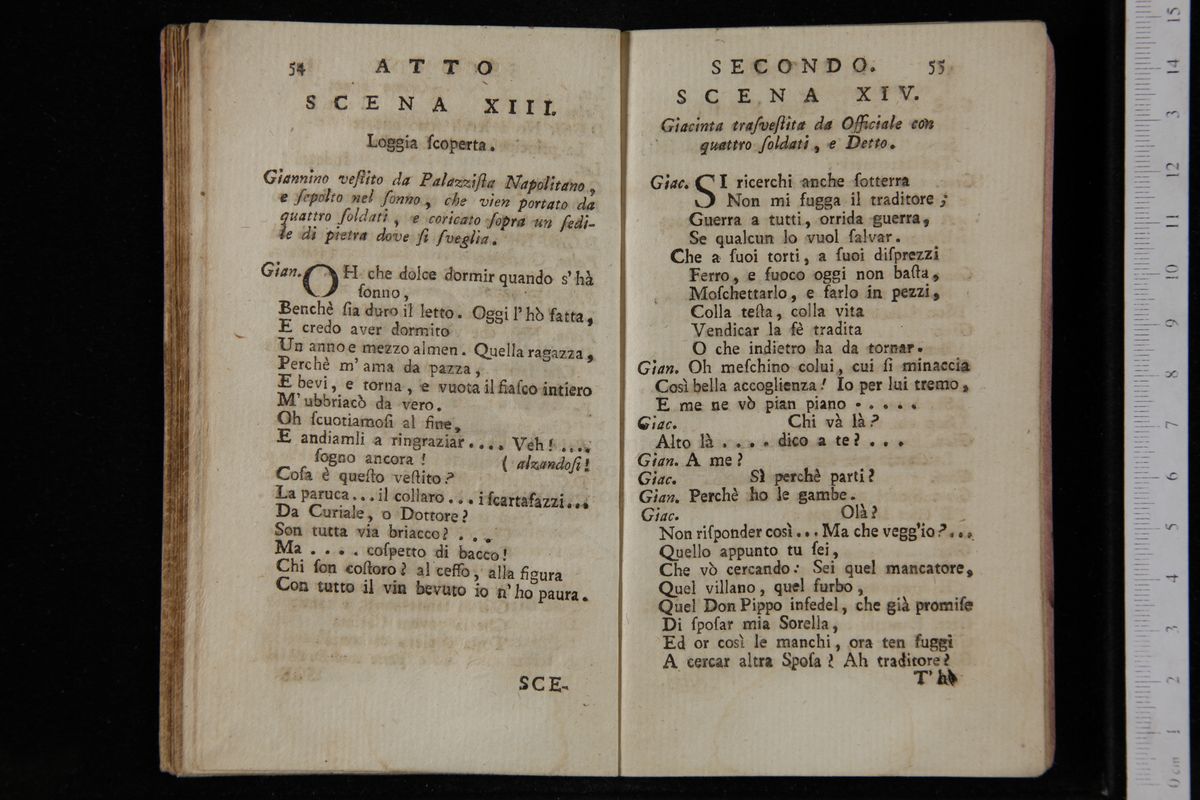 54 ATTO
SCENA XIII.
Loggia ſcoperta.
Giannino veſtito da Palazziſta Napolitano,
e ſepolto nel ſonno, che vien portato da
quattro ſoldati, e coricato ſopra un ſedi-
le di pietra dove ſi ſveglia.
Gian. OH che dolce dormir quando s' hà
ſonno,
Benchè ſia duro il letto. Oggi l' hò fatta,
E credo aver dormito
Un anno e mezzo almen. Quella ragazza,
Perchè m' ama da pazza,
E bevi, e torna, e vuota il fiaſco intiero
M' ubbriacò da vero.
Oh ſcuotiamoſi al fine,
E andiamli a ringraziar.... Veh! ....
ſogno ancora! ( alzandoſi!
Coſa è queſto veſtito?
La paruca... il collaro... i ſcartafazzi...
Da Curiale, o Dottore?
Son tutta via briacco? ...
Ma .... coſpetto di bacco!
Chi ſon coſtoro? al ceffo, alla figura
Con tutto il vin bevuto io n' ho paura.
SCE-
SECONDO. 55
SCENA XIV.
Giacinta traſveſtita da Officiale con
quattro ſoldati, e Detto.
Giac. SI ricerchi anche ſotterra
Non mi fugga il traditore;
Guerra a tutti, orrida guerra,
Se qualcun lo vuol ſalvar.
Che a ſuoi torti, a ſuoi diſprezzi
Ferro, e fuoco oggi non baſta,
Moſchettarlo, e farlo in pezzi,
Colla teſta, colla vita
Vendicar la fè tradita
O che indietro ha da tornar.
Gian. Oh meſchino colui, cui ſi minaccia
Così bella accoglienza! Io per lui tremo,
E me ne vò pian piano .....
Giac. Chi và là?
Alto là .... dico a te? ...
Gian. A me?
Giac. Sì perchè parti?
Gian. Perchè ho le gambe.
Giac. Olà?
Non riſponder così... Ma che vegg'io?...
Quello appunto tu ſei,
Che vò cercando: Sei quel mancatore,
Quel villano, quel furbo,
Quel Don Pippo infedel, che già promiſe
Di ſpoſar mia Sorella,
Ed or così le manchi, ora ten fuggi
A cercar altra Spoſa? Ah traditore?
T' hò
15
14
13
12
11
10
9
8
7
6
5
4
3
2
1
0 cm